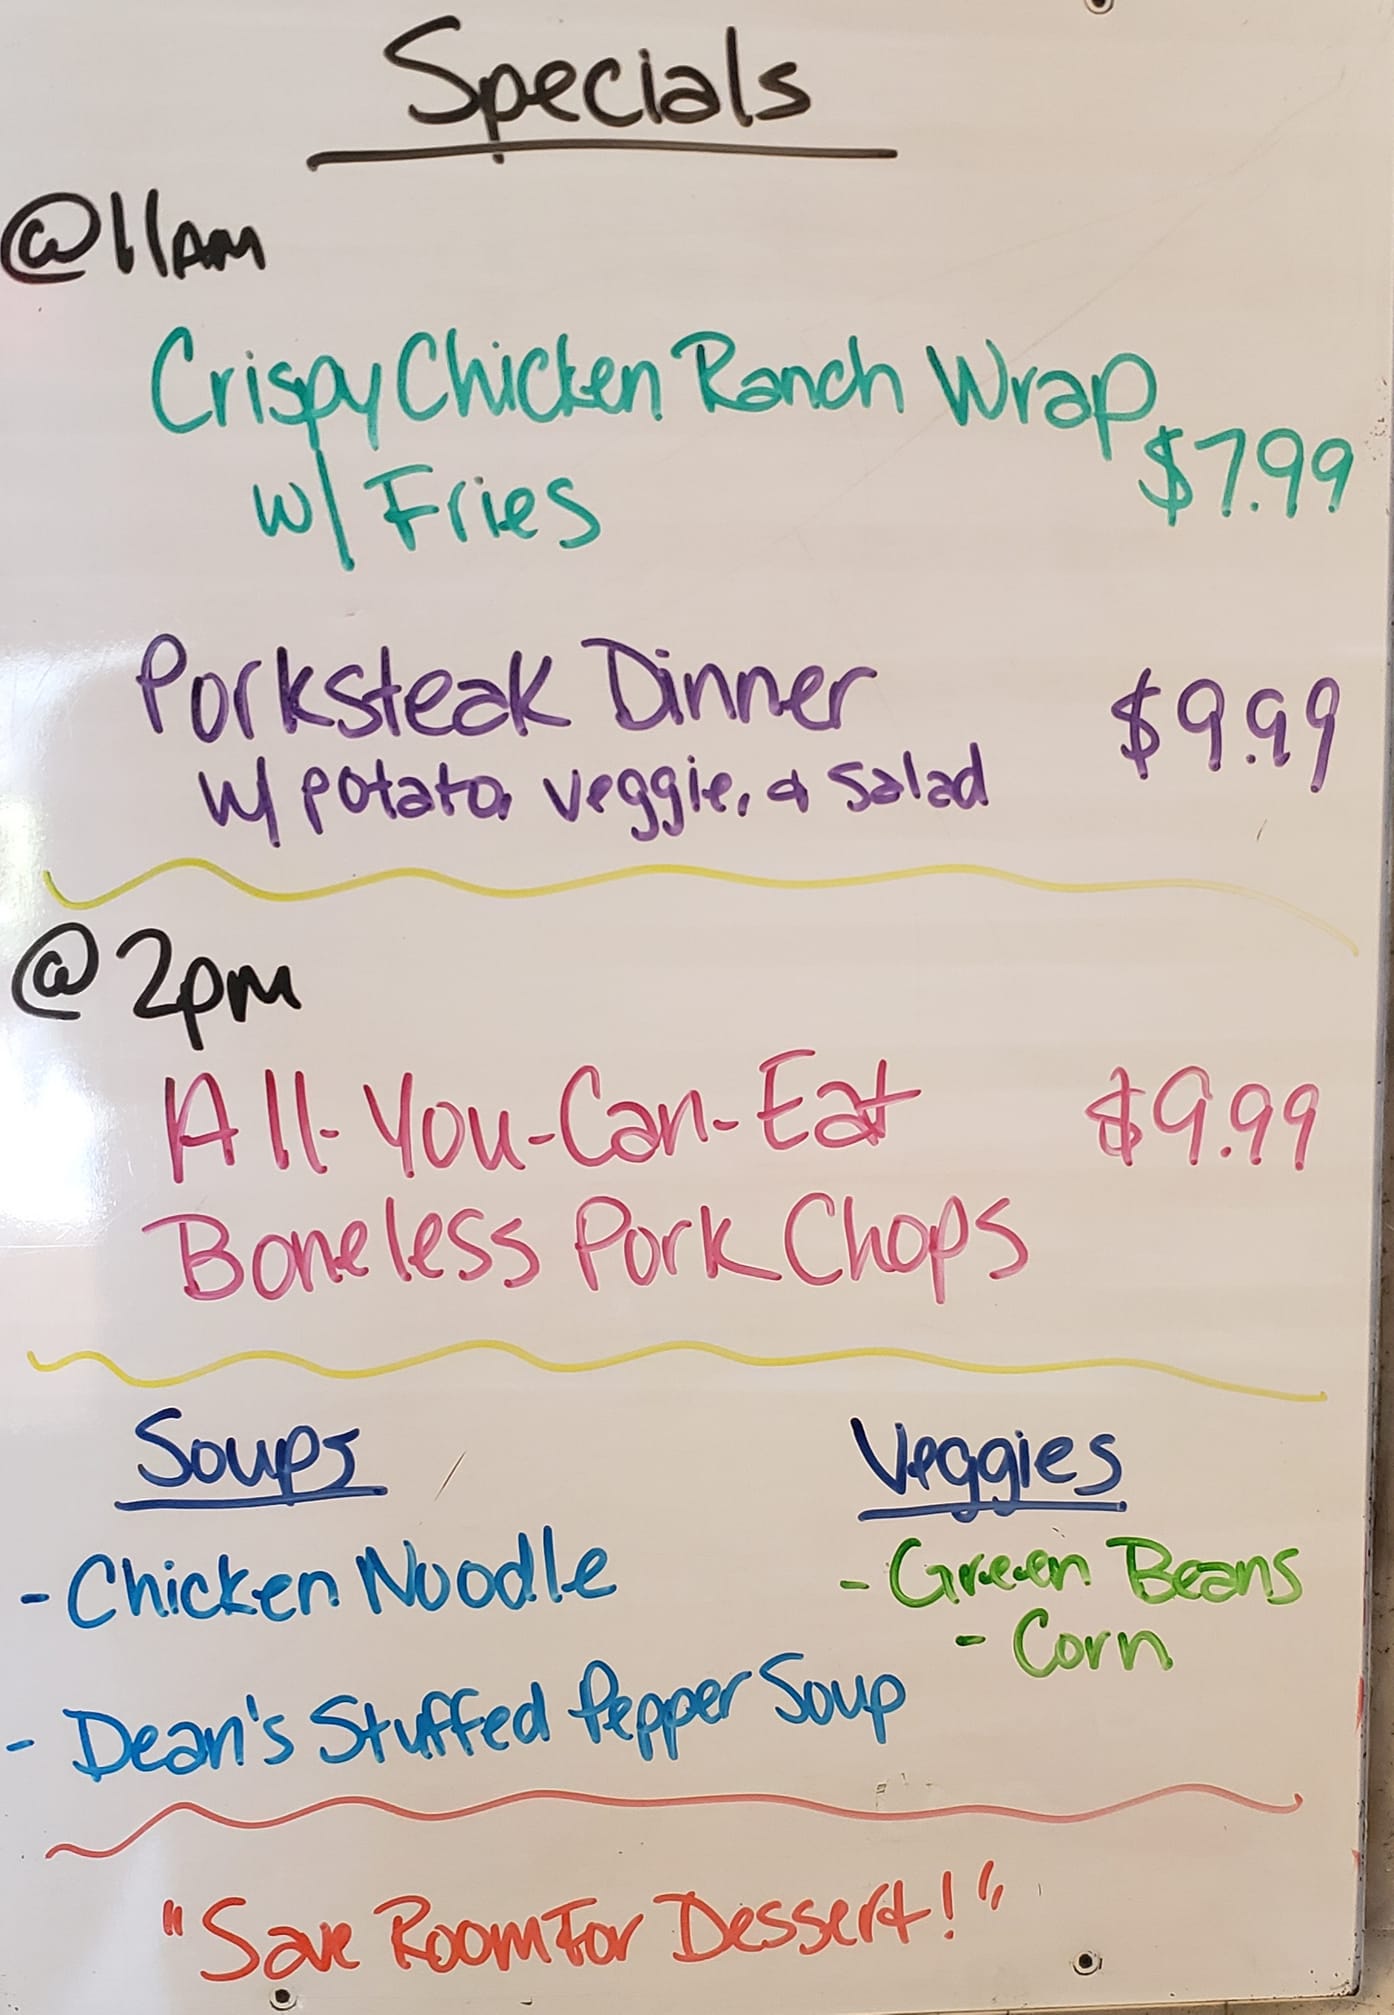 Specials
@11AM
Crispy Chicken Ranch Wrap
$7.99
w/ Fries
Porksteak Dinner $9.99
w/ potato, veggie, & salad
@ 2pm
All-You-Can-Eat $9.99
Boneless Pork Chops
Soups Veggies
- Chicken Noodle - Green Beans
- Corn
- Dean's Stuffed Pepper Soup
"Save Room For Dessert!"